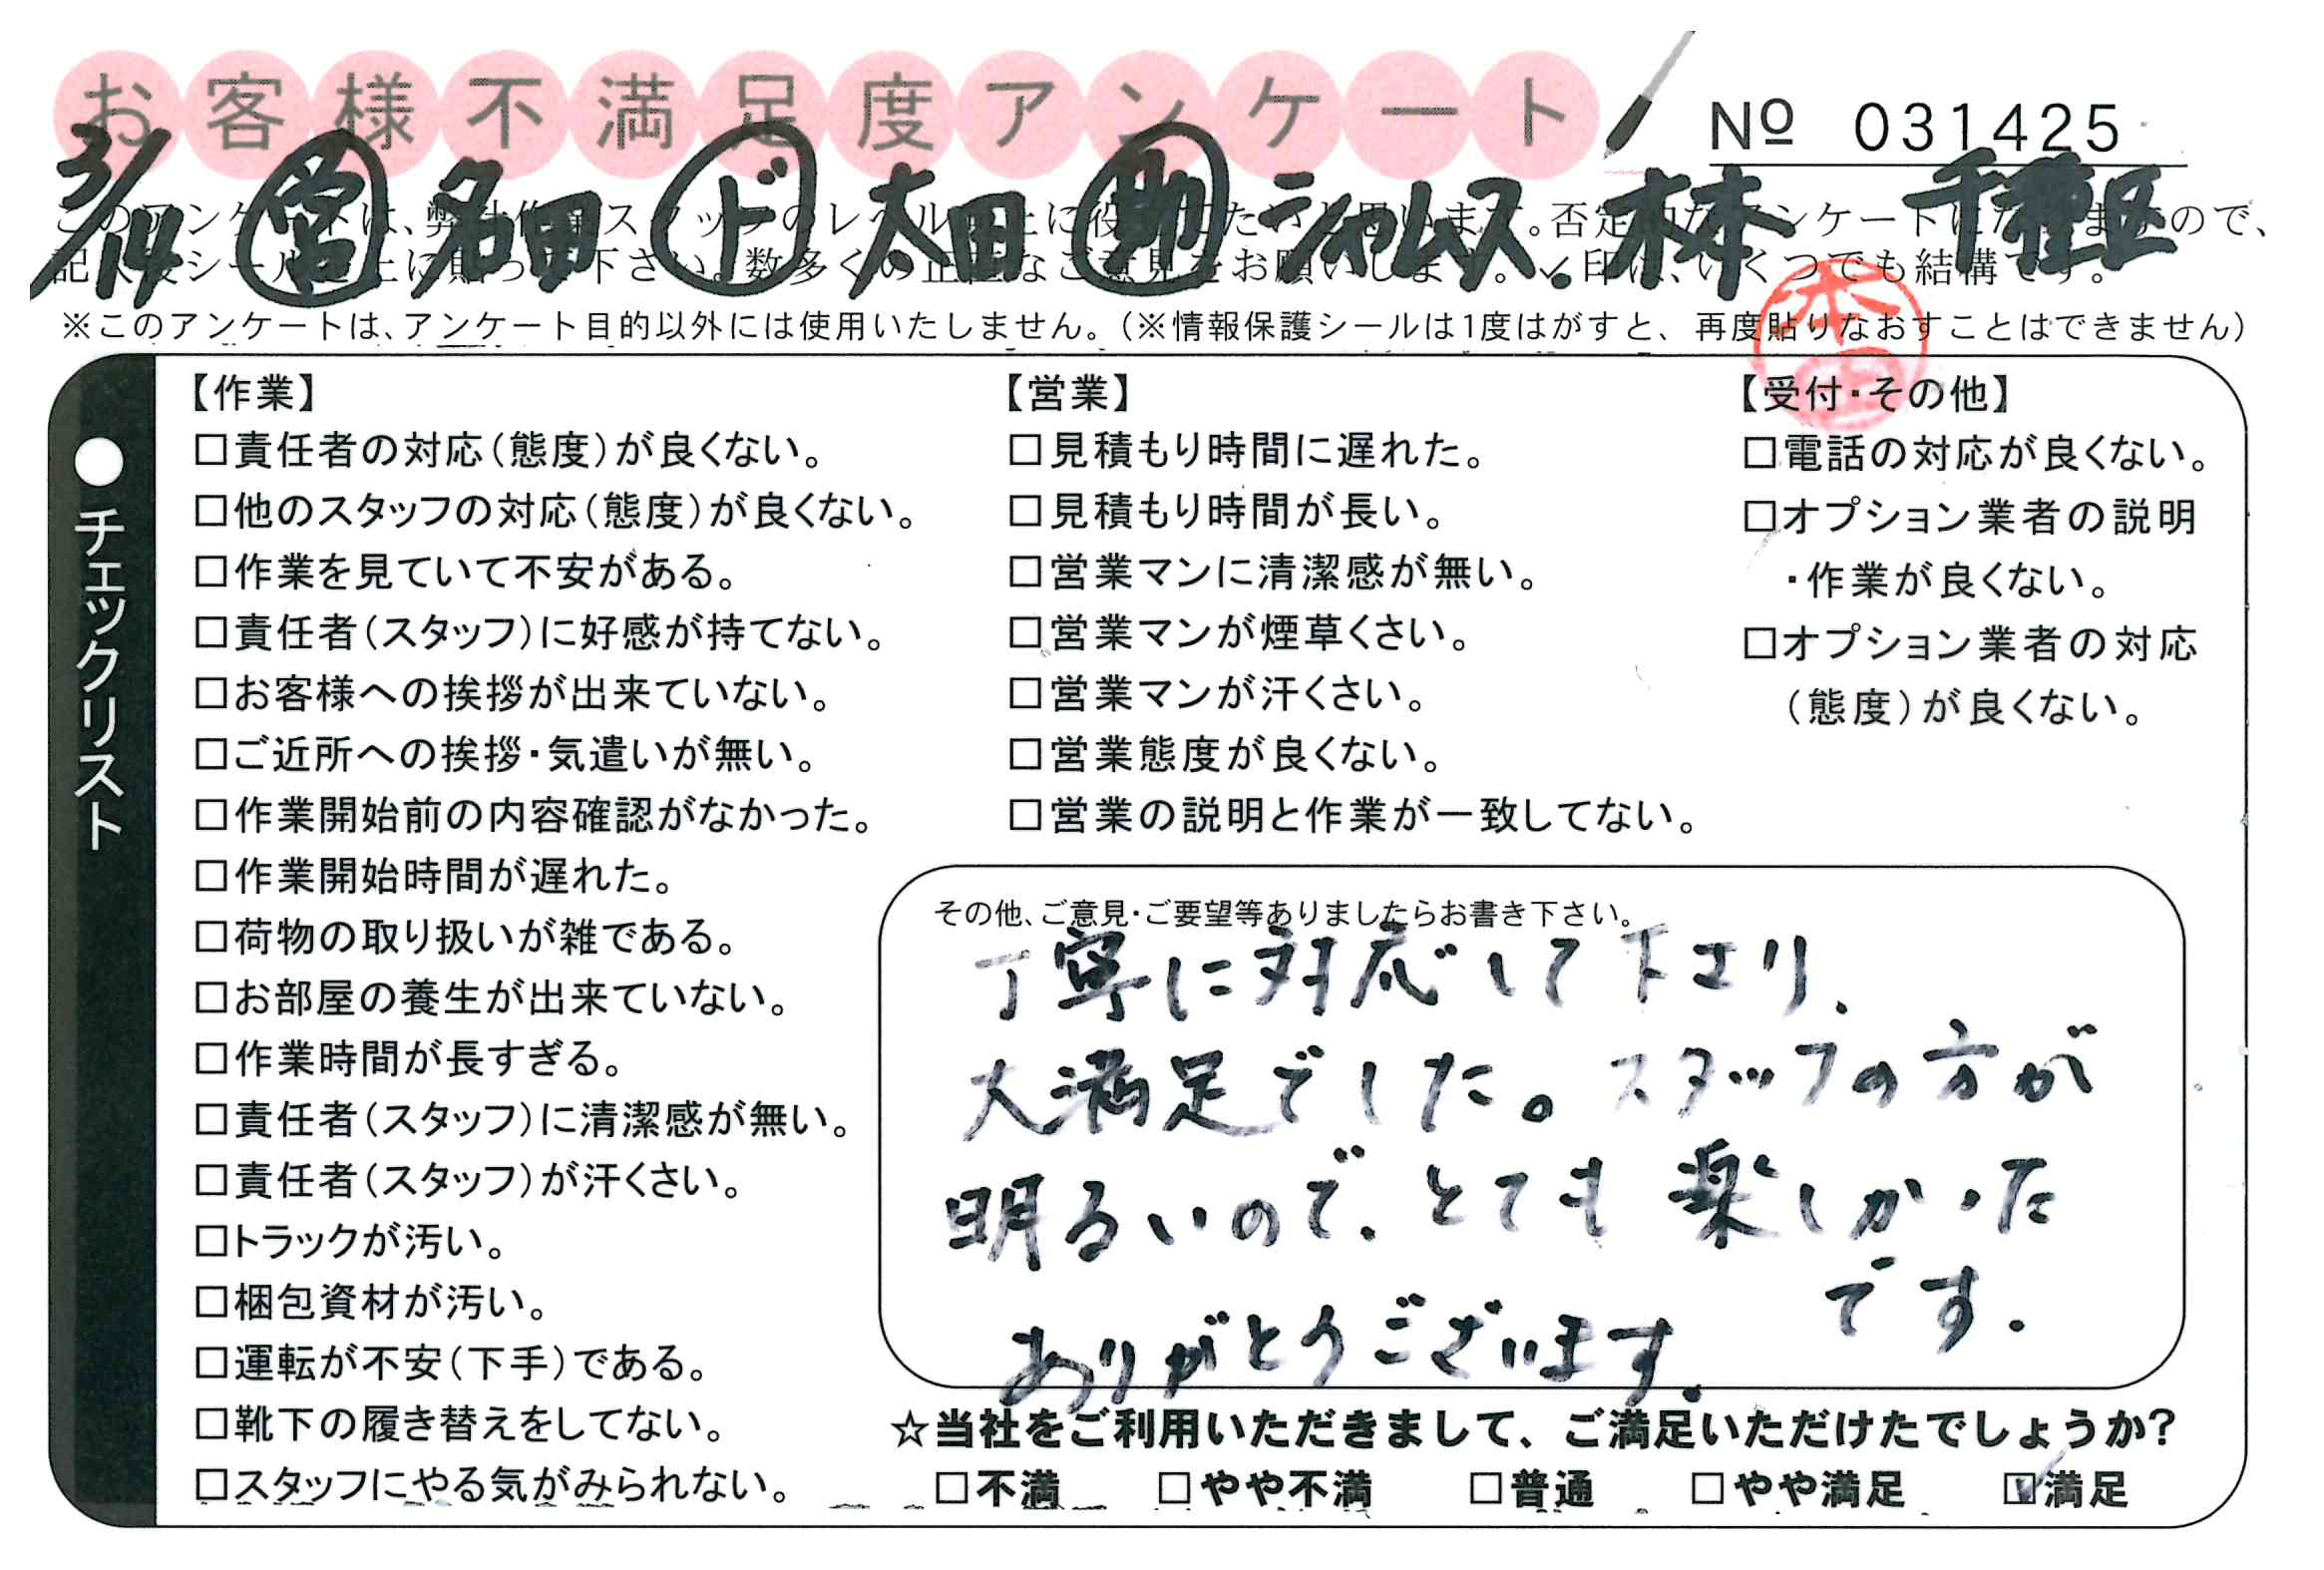 お客様不満足度アンケート
№ 031425
3/14 ㊂営 名田 ド 太田 助 シャムス.木本 千種区
※このアンケートは、アンケート目的以外には使用いたしません。（※情報保護シールは1度はがすと、再度貼りなおすことはできません）
本田
●チェックリスト
【作業】
□責任者の対応（態度）が良くない。
□他のスタッフの対応（態度）が良くない。
□作業を見ていて不安がある。
□責任者（スタッフ）に好感が持てない。
□お客様への挨拶が出来ていない。
□ご近所への挨拶・気遣いが無い。
□作業開始前の内容確認がなかった。
□作業開始時間が遅れた。
□荷物の取り扱いが雑である。
□お部屋の養生が出来ていない。
□作業時間が長すぎる。
□責任者（スタッフ）に清潔感が無い。
□責任者（スタッフ）が汗くさい。
□トラックが汚い。
□梱包資材が汚い。
□運転が不安（下手）である。
□靴下の履き替えをしてない。
□スタッフにやる気がみられない。
【営業】
□見積もり時間に遅れた。
□見積もり時間が長い。
□営業マンに清潔感が無い。
□営業マンが煙草くさい。
□営業マンが汗くさい。
□営業態度が良くない。
□営業の説明と作業が一致してない。
【受付・その他】
□電話の対応が良くない。
□オプション業者の説明
・作業が良くない。
□オプション業者の対応
（態度）が良くない。
その他、ご意見・ご要望等ありましたらお書き下さい。
丁寧に対応して下さり、
大満足でした。スタッフの方が
明るいので、とても楽しかった
です.
ありがとうございます.
☆当社をご利用いただきまして、ご満足いただけたでしょうか？
□不満 □やや不満 □普通 □やや満足 ☑満足